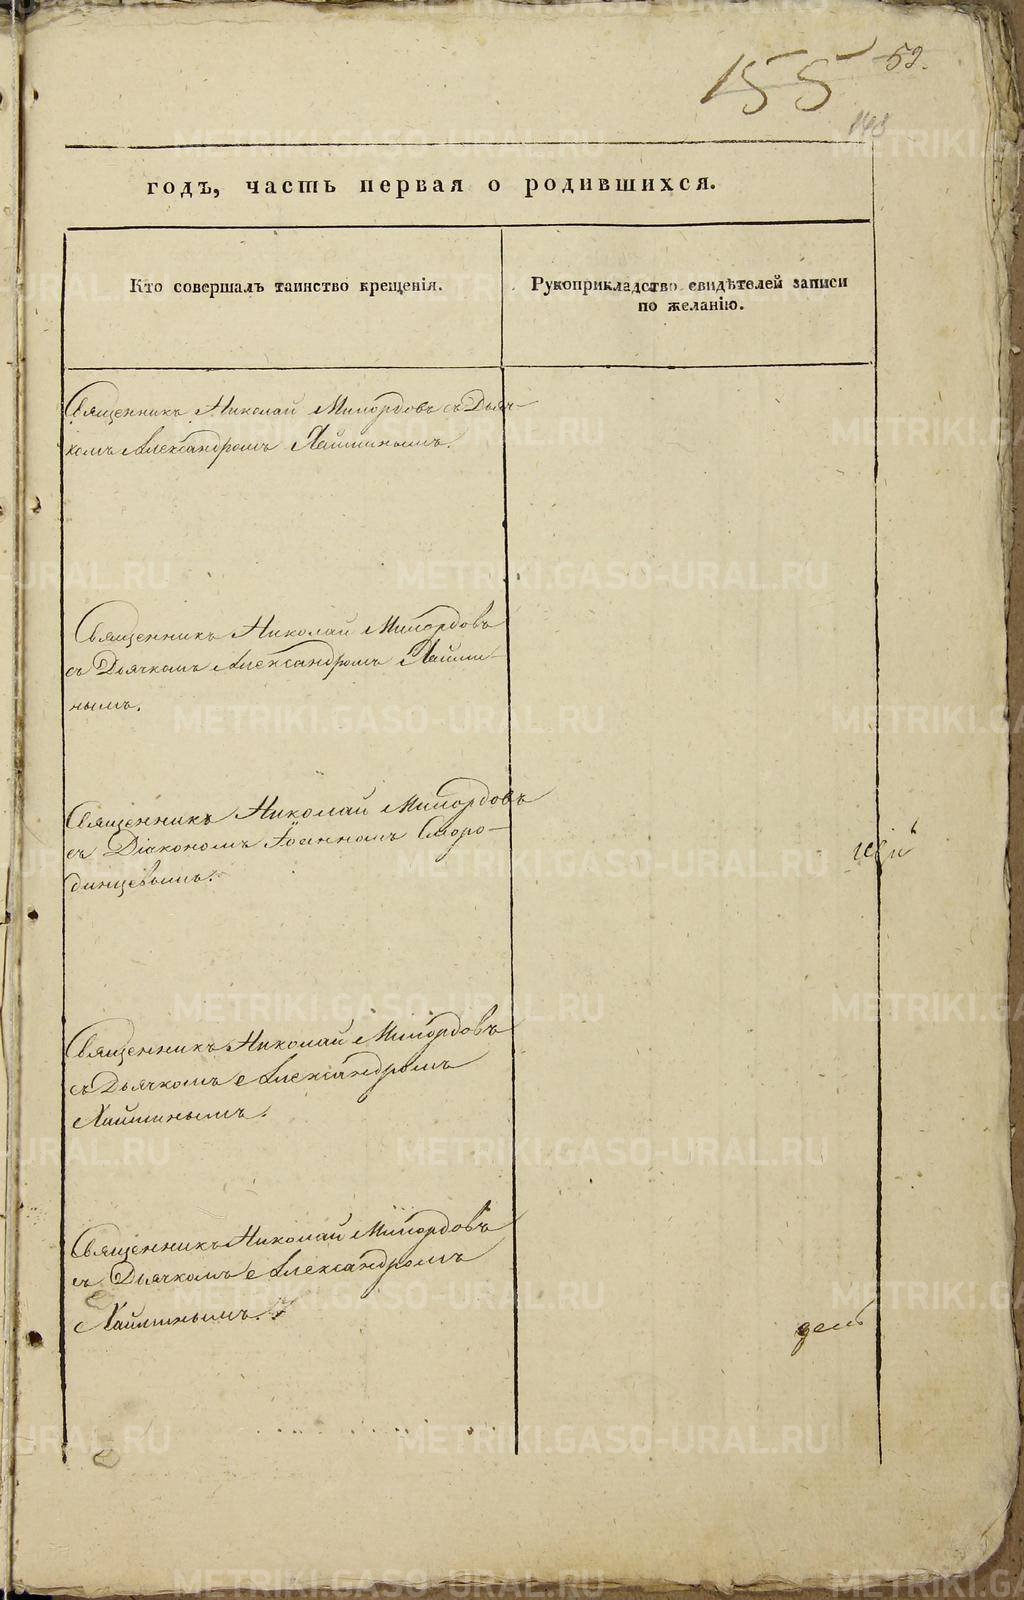 155
52.
148
годъ, часть первая о родившихся.
Кто совершалъ таинство крещенія.
Рукоприкладство свидѣтелей записи
по желанію.
Священникъ Николай Милордовъ съ Дьяч-
комъ Александромъ Хайминымъ.
Священникъ Николай Милордовъ
съ Дьячкомъ Александромъ Хайми-
нымъ.
Священникъ Николай Милордовъ
съ Діакономъ Іоанномъ Сморо-
динцевымъ.
Священникъ Николай Милордовъ
съ Дьячкомъ Александромъ
Хайминымъ.
Священникъ Николай Милордовъ
съ Дьячкомъ Александромъ
Хайминымъ.
METRIKI.GASO-URAL.RU